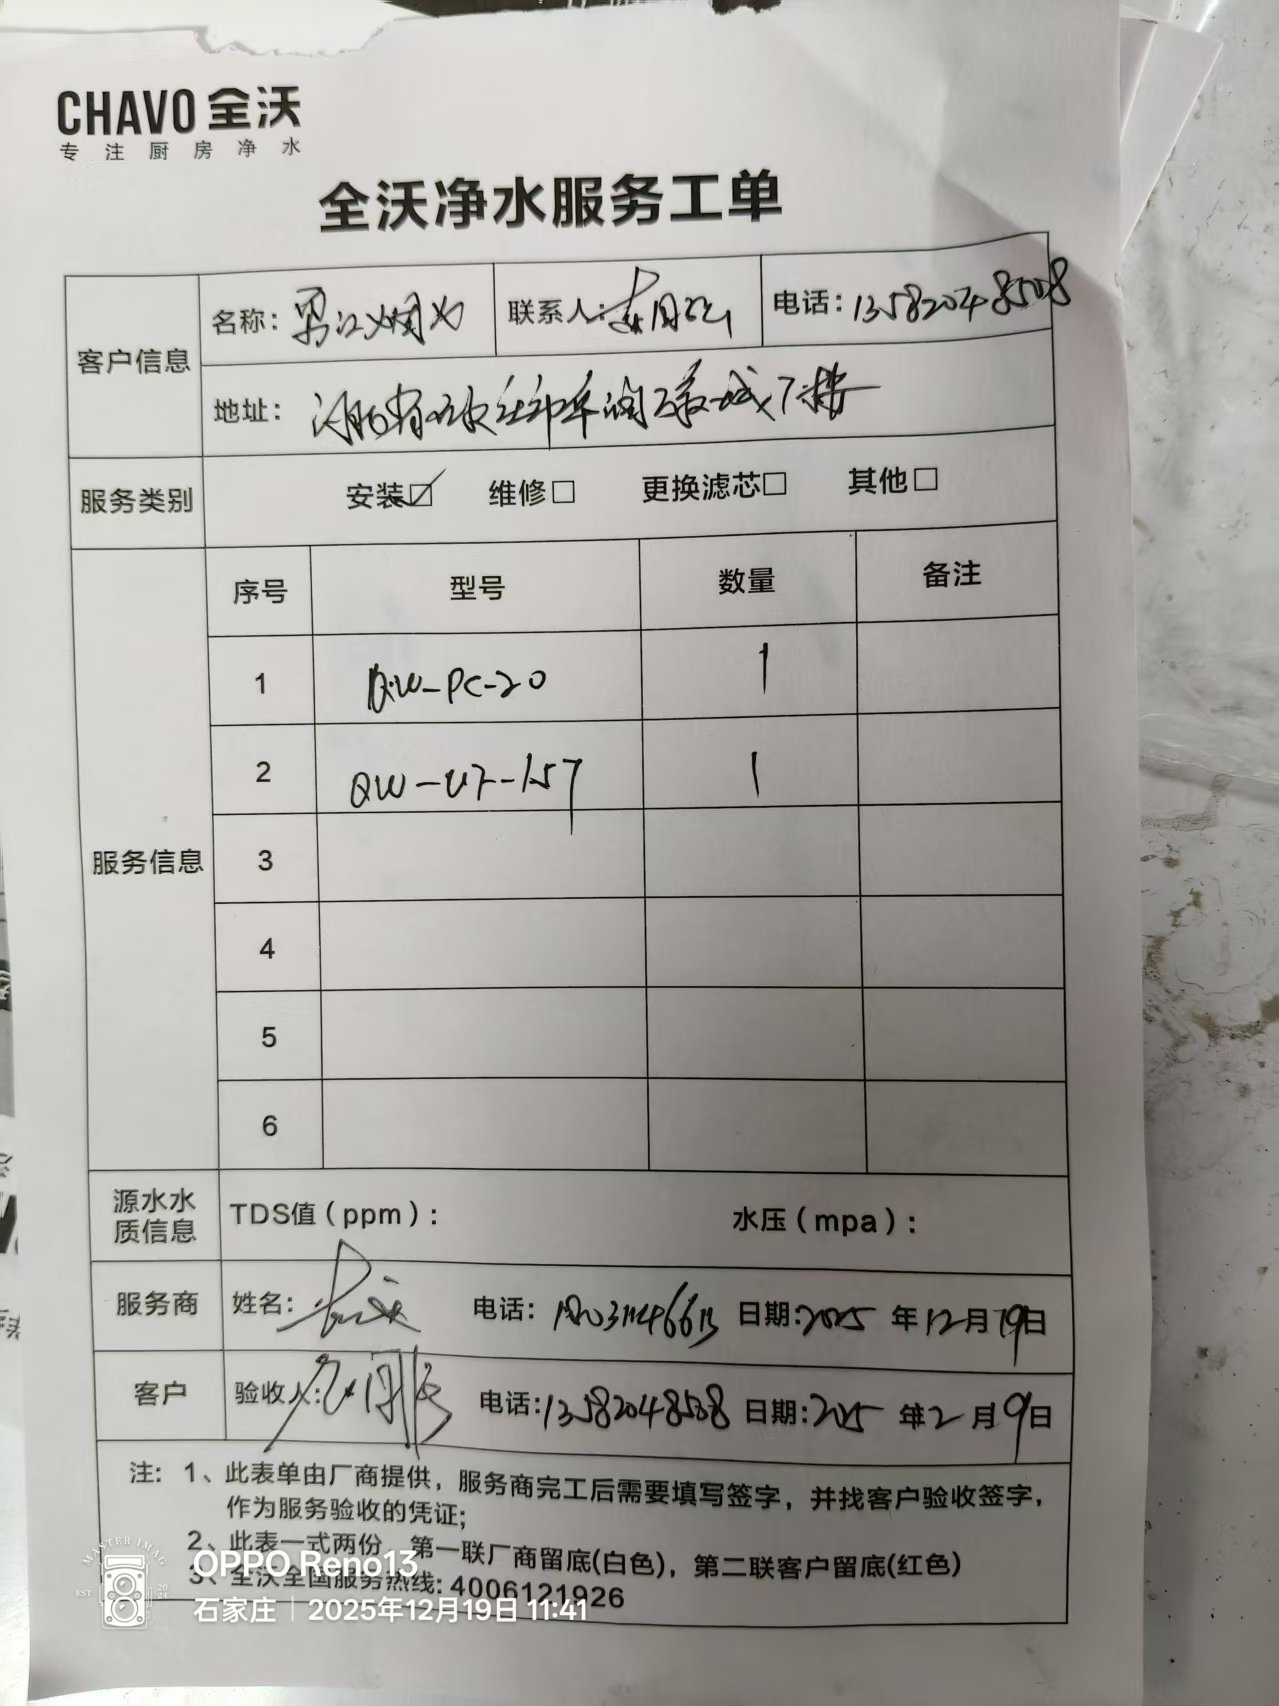 CHAVO 全沃
专注厨房净水
全沃净水服务工单
客户信息
名称:
联系人:
电话: 13582048508
地址: 万象城7楼
服务类别 安装☑ 维修□ 更换滤芯□ 其他□
服务信息
序号 型号 数量 备注
1 QW-PC-20 1
2 QW-UF-157 1
3
4
5
6
源水水质信息 TDS值(ppm): 水压(mpa):
服务商 姓名: 电话: 日期:2025 年12月19日
客户 验收人: 电话:13582048508 日期:2025 年12月19日
注: 1、此表单由厂商提供,服务商完工后需要填写签字,并找客户验收签字,
作为服务验收的凭证;
2、此表一式两份,第一联厂商留底(白色),第二联客户留底(红色)
3、全沃全国服务热线: 4006121926
MASTER IMAG
EST 2024
OPPO Reno13
石家庄 | 2025年12月19日 11:41